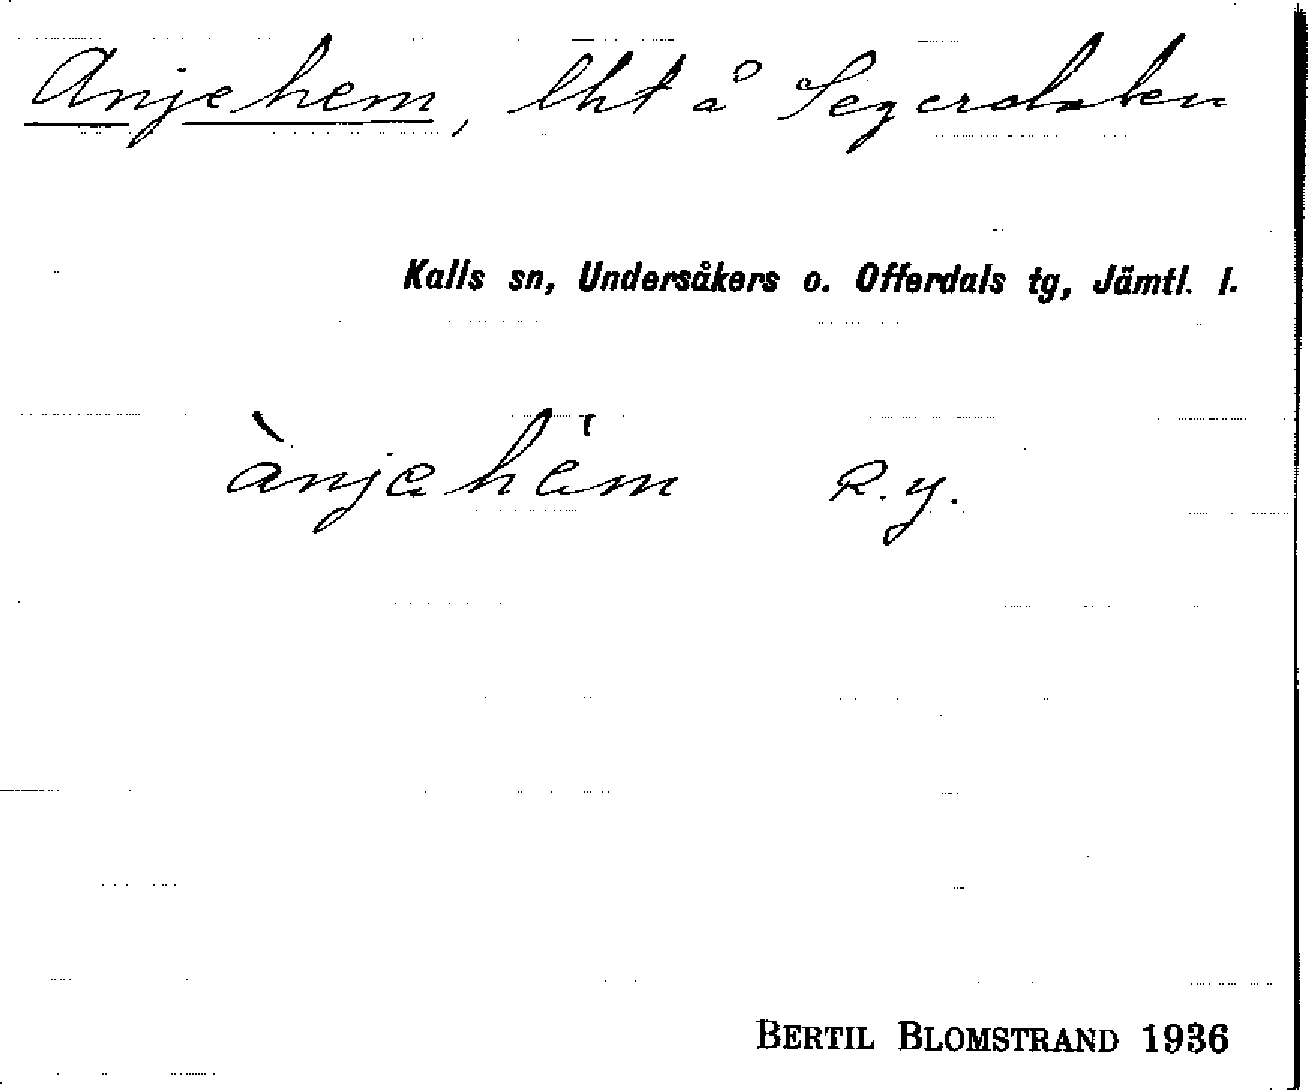 Anjehem, lht å Segerdalen
Kalls sn, Undersåkers o. Offerdals tg, Jämtl. l.
ànjehem R.y.
BERTIL BLOMSTRAND 1936